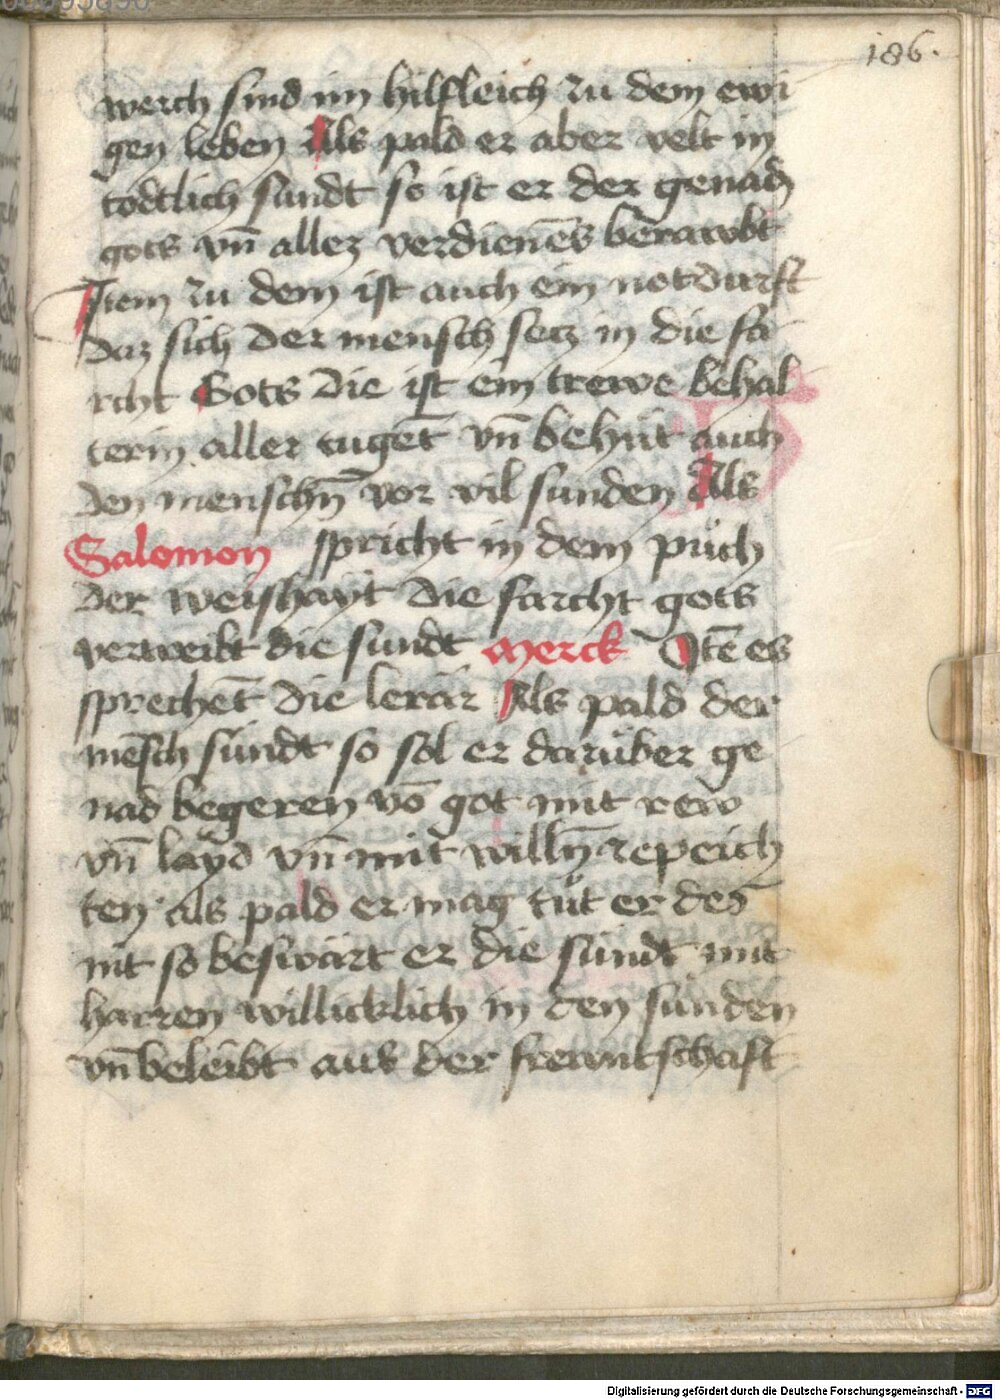 186.
werch sind im hilfleich zu dem ewi
gen leben Als pald er aber velt in
todtlich sundt so ist er der genad
gots vn̄ allez verdienēs berawbt
Item zu dem ist auch ein notdurft
daz sich der mensch secz in die fa
rcht Gots die ist ein trewe behal
terin aller tugēt vn̄ behüt auch
den menschn̄ vor vil sunden Als
Salomon spricht in dem půch
der weishayt die farcht gots
vertreibt die sundt Merck Itē es
sprechēt die lerär Als pald der
mēsch sündt so sol er darüber ge
nad begeren vō got mit rew
vn̄ layd vn̄ mit willn̄ ze peich
ten als pald er mag tůt er des
nit so beswärt er die sündt mit
harren willicklich in den sünden
vn̄ beleibt aus der frewntschaft
Digitalisierung gefördert durch die Deutsche Forschungsgemeinschaft - DFG